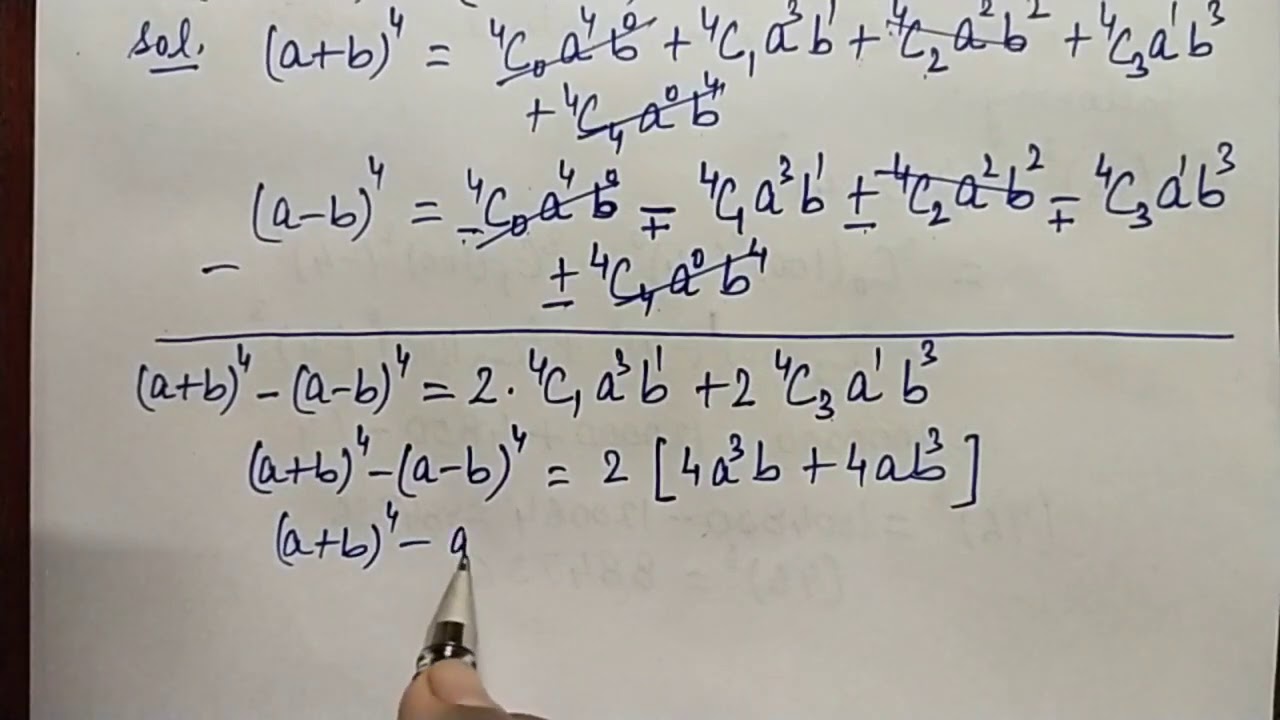 Sol. (a+b)⁴ = ⁴C₀a⁴b⁰ + ⁴C₁a³b¹ + ⁴C₂a²b² + ⁴C₃a¹b³
+ ⁴C₄a⁰b⁴
(a−b)⁴ = ⁴C₀a⁴b⁰ − ⁴C₁a³b¹ + ⁴C₂a²b² − ⁴C₃a¹b³
− + − + 
− + ⁴C₄a⁰b⁴
−
(a+b)⁴ − (a−b)⁴ = 2·⁴C₁a³b¹ + 2 ⁴C₃a¹b³
(a+b)⁴ − (a−b)⁴ = 2 [4a³b + 4ab³]
(a+b)⁴ − a